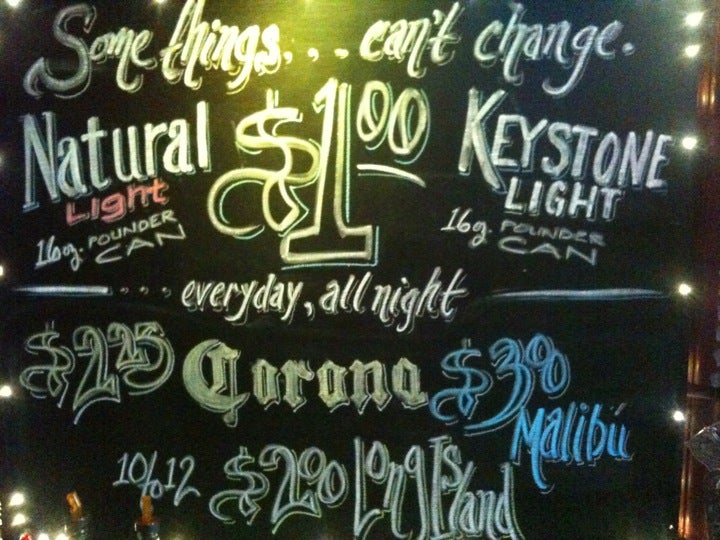 Some things... can't change.
Natural Light $1.00 KEYSTONE LIGHT
16oz. POUNDER CAN 16oz. POUNDER CAN
... everyday, all night
$2.25 Corona $3.00 Malibú
$2.00 Long Island